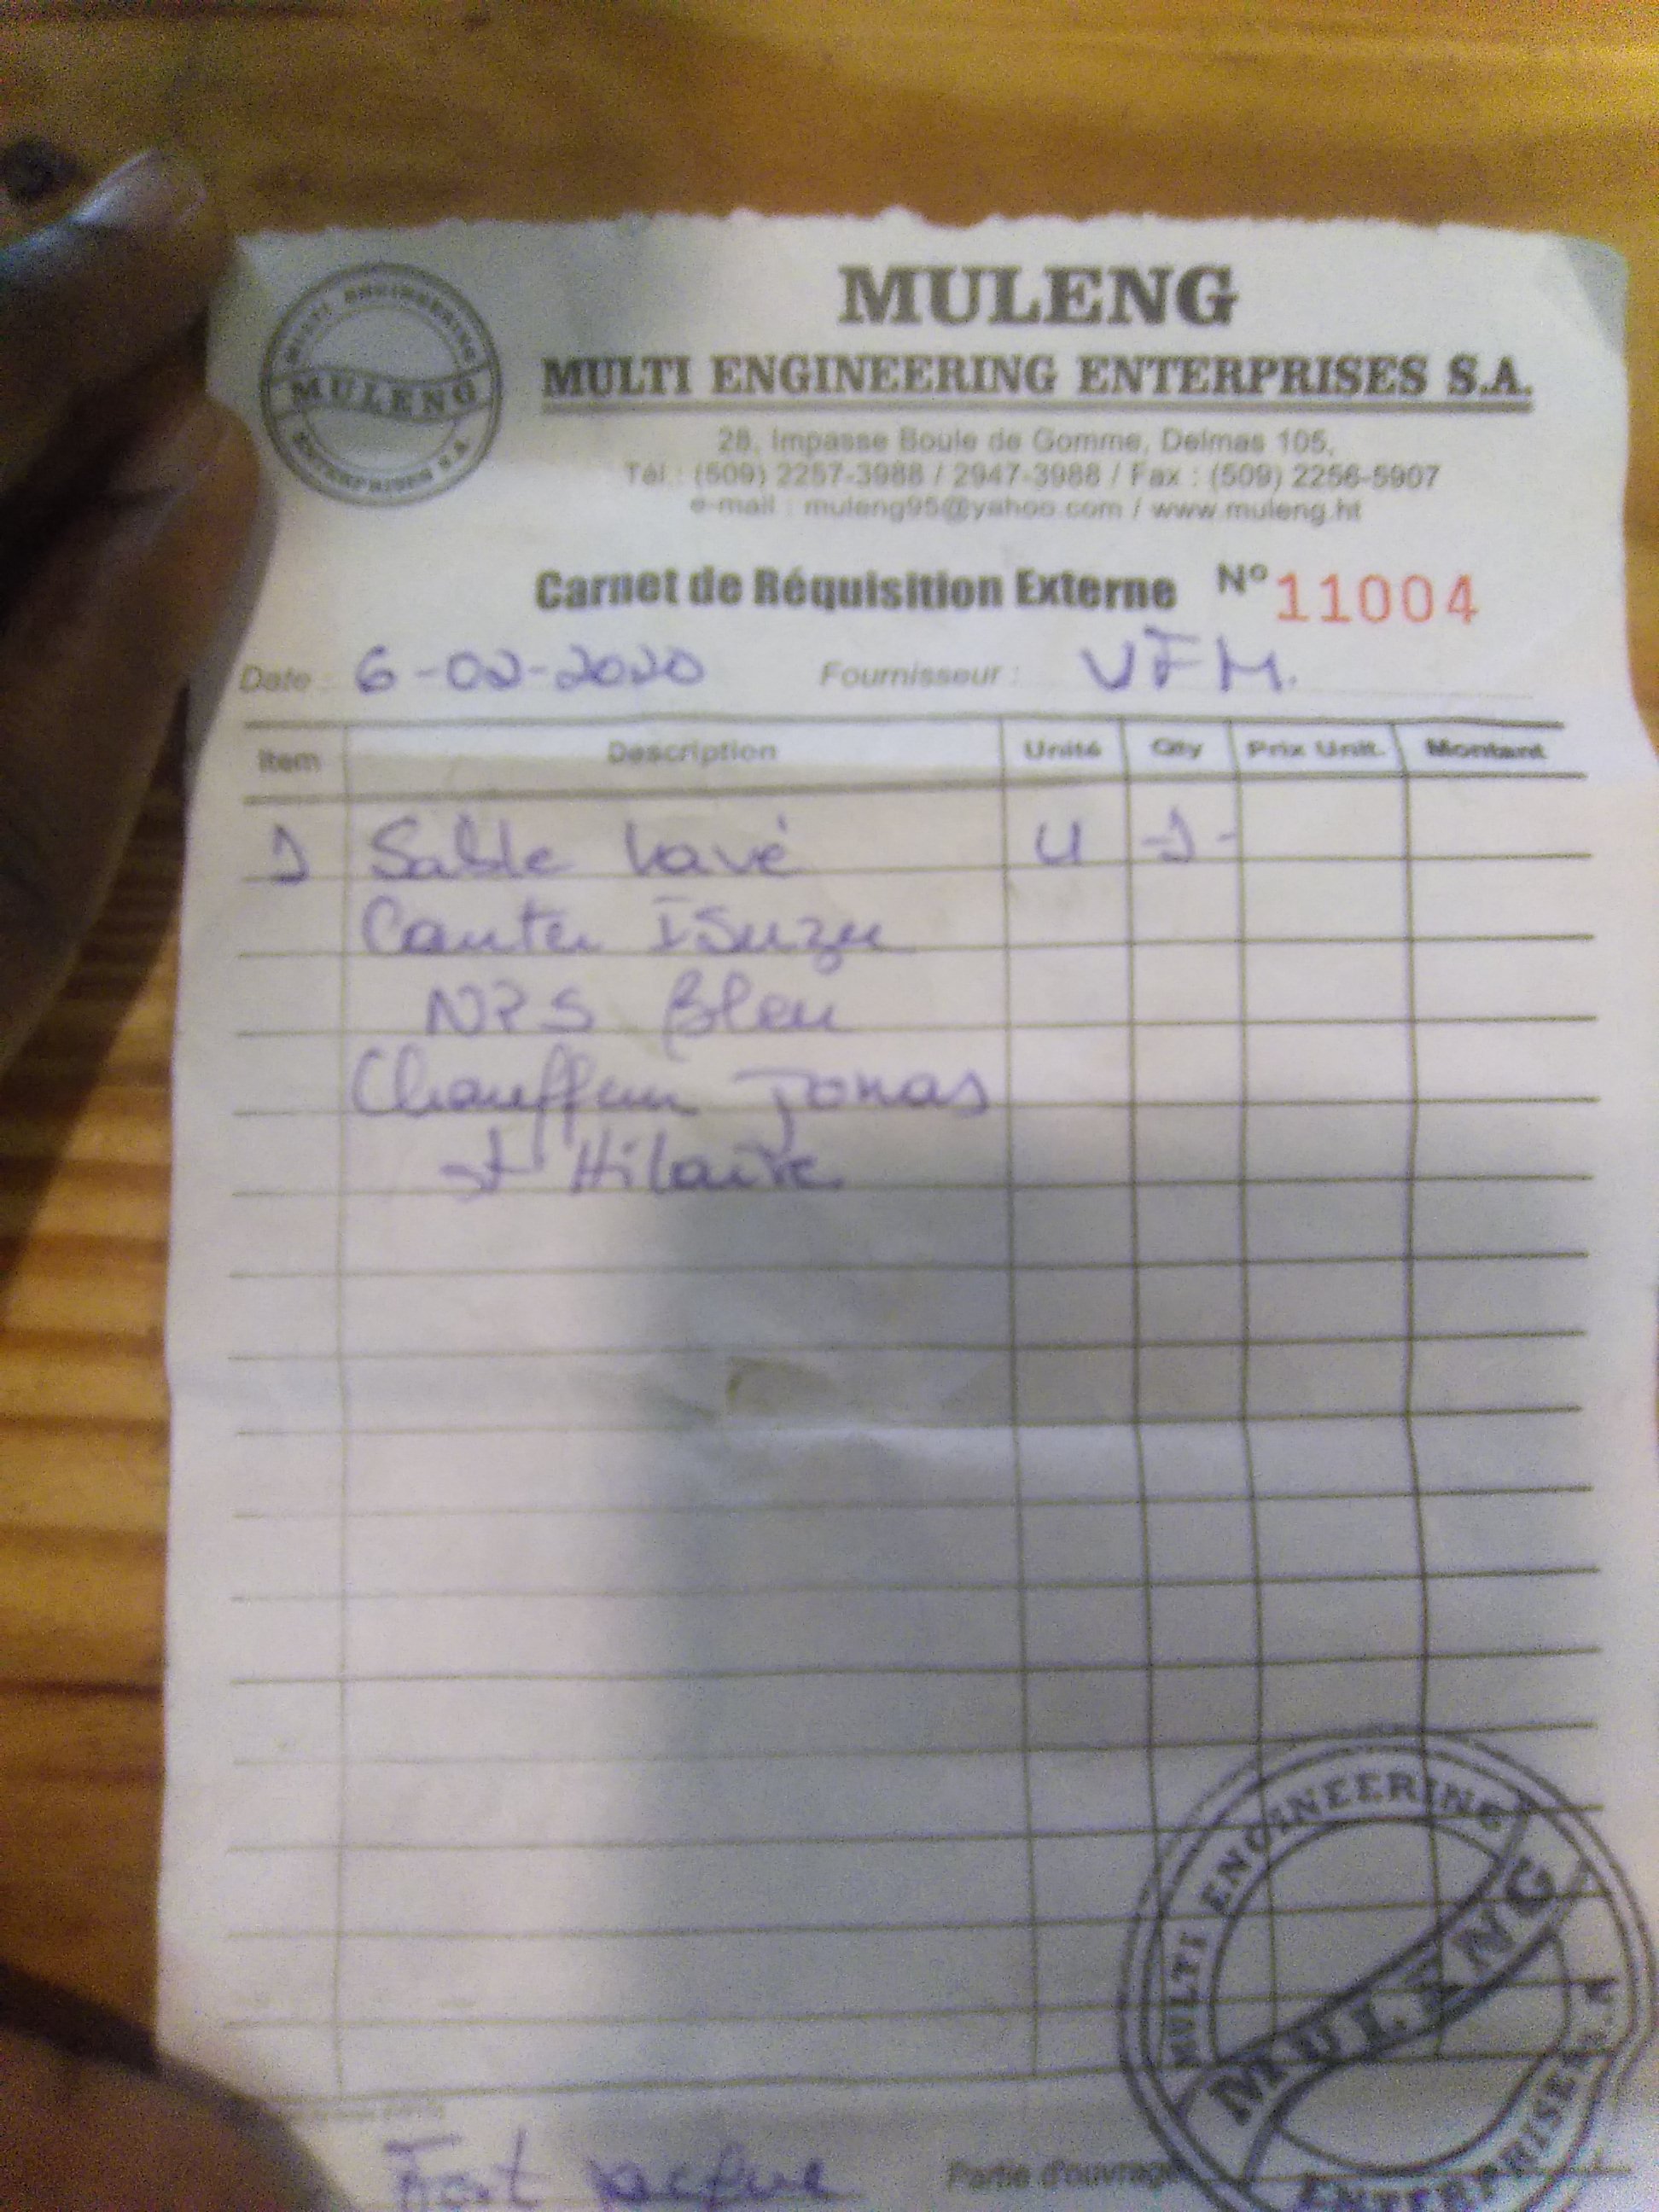 MULTI ENGINEERING
MULENG
ENTERPRISES S.A.
MULENG
MULTI ENGINEERING ENTERPRISES S.A.
28, Impasse Boule de Gomme, Delmas 105,
Tél.: (509) 2257-3988 / 2947-3988 / Fax : (509) 2256-5907
e-mail : muleng95@yahoo.com / www.muleng.ht
Carnet de Réquisition Externe Nº 11004
Date : 6-02-2020 Fournisseur : VFM.
Item Description Unité Qty Prix Unit. Montant
1 Sable lavé U -1-
Canter Isuzu
NPS Bleu
Chauffeur Jonas
St Hilaire
MULTI ENGINEERING
MULENG
ENTERPRISES S.A
Fort Jacque Partie d'ouvrage